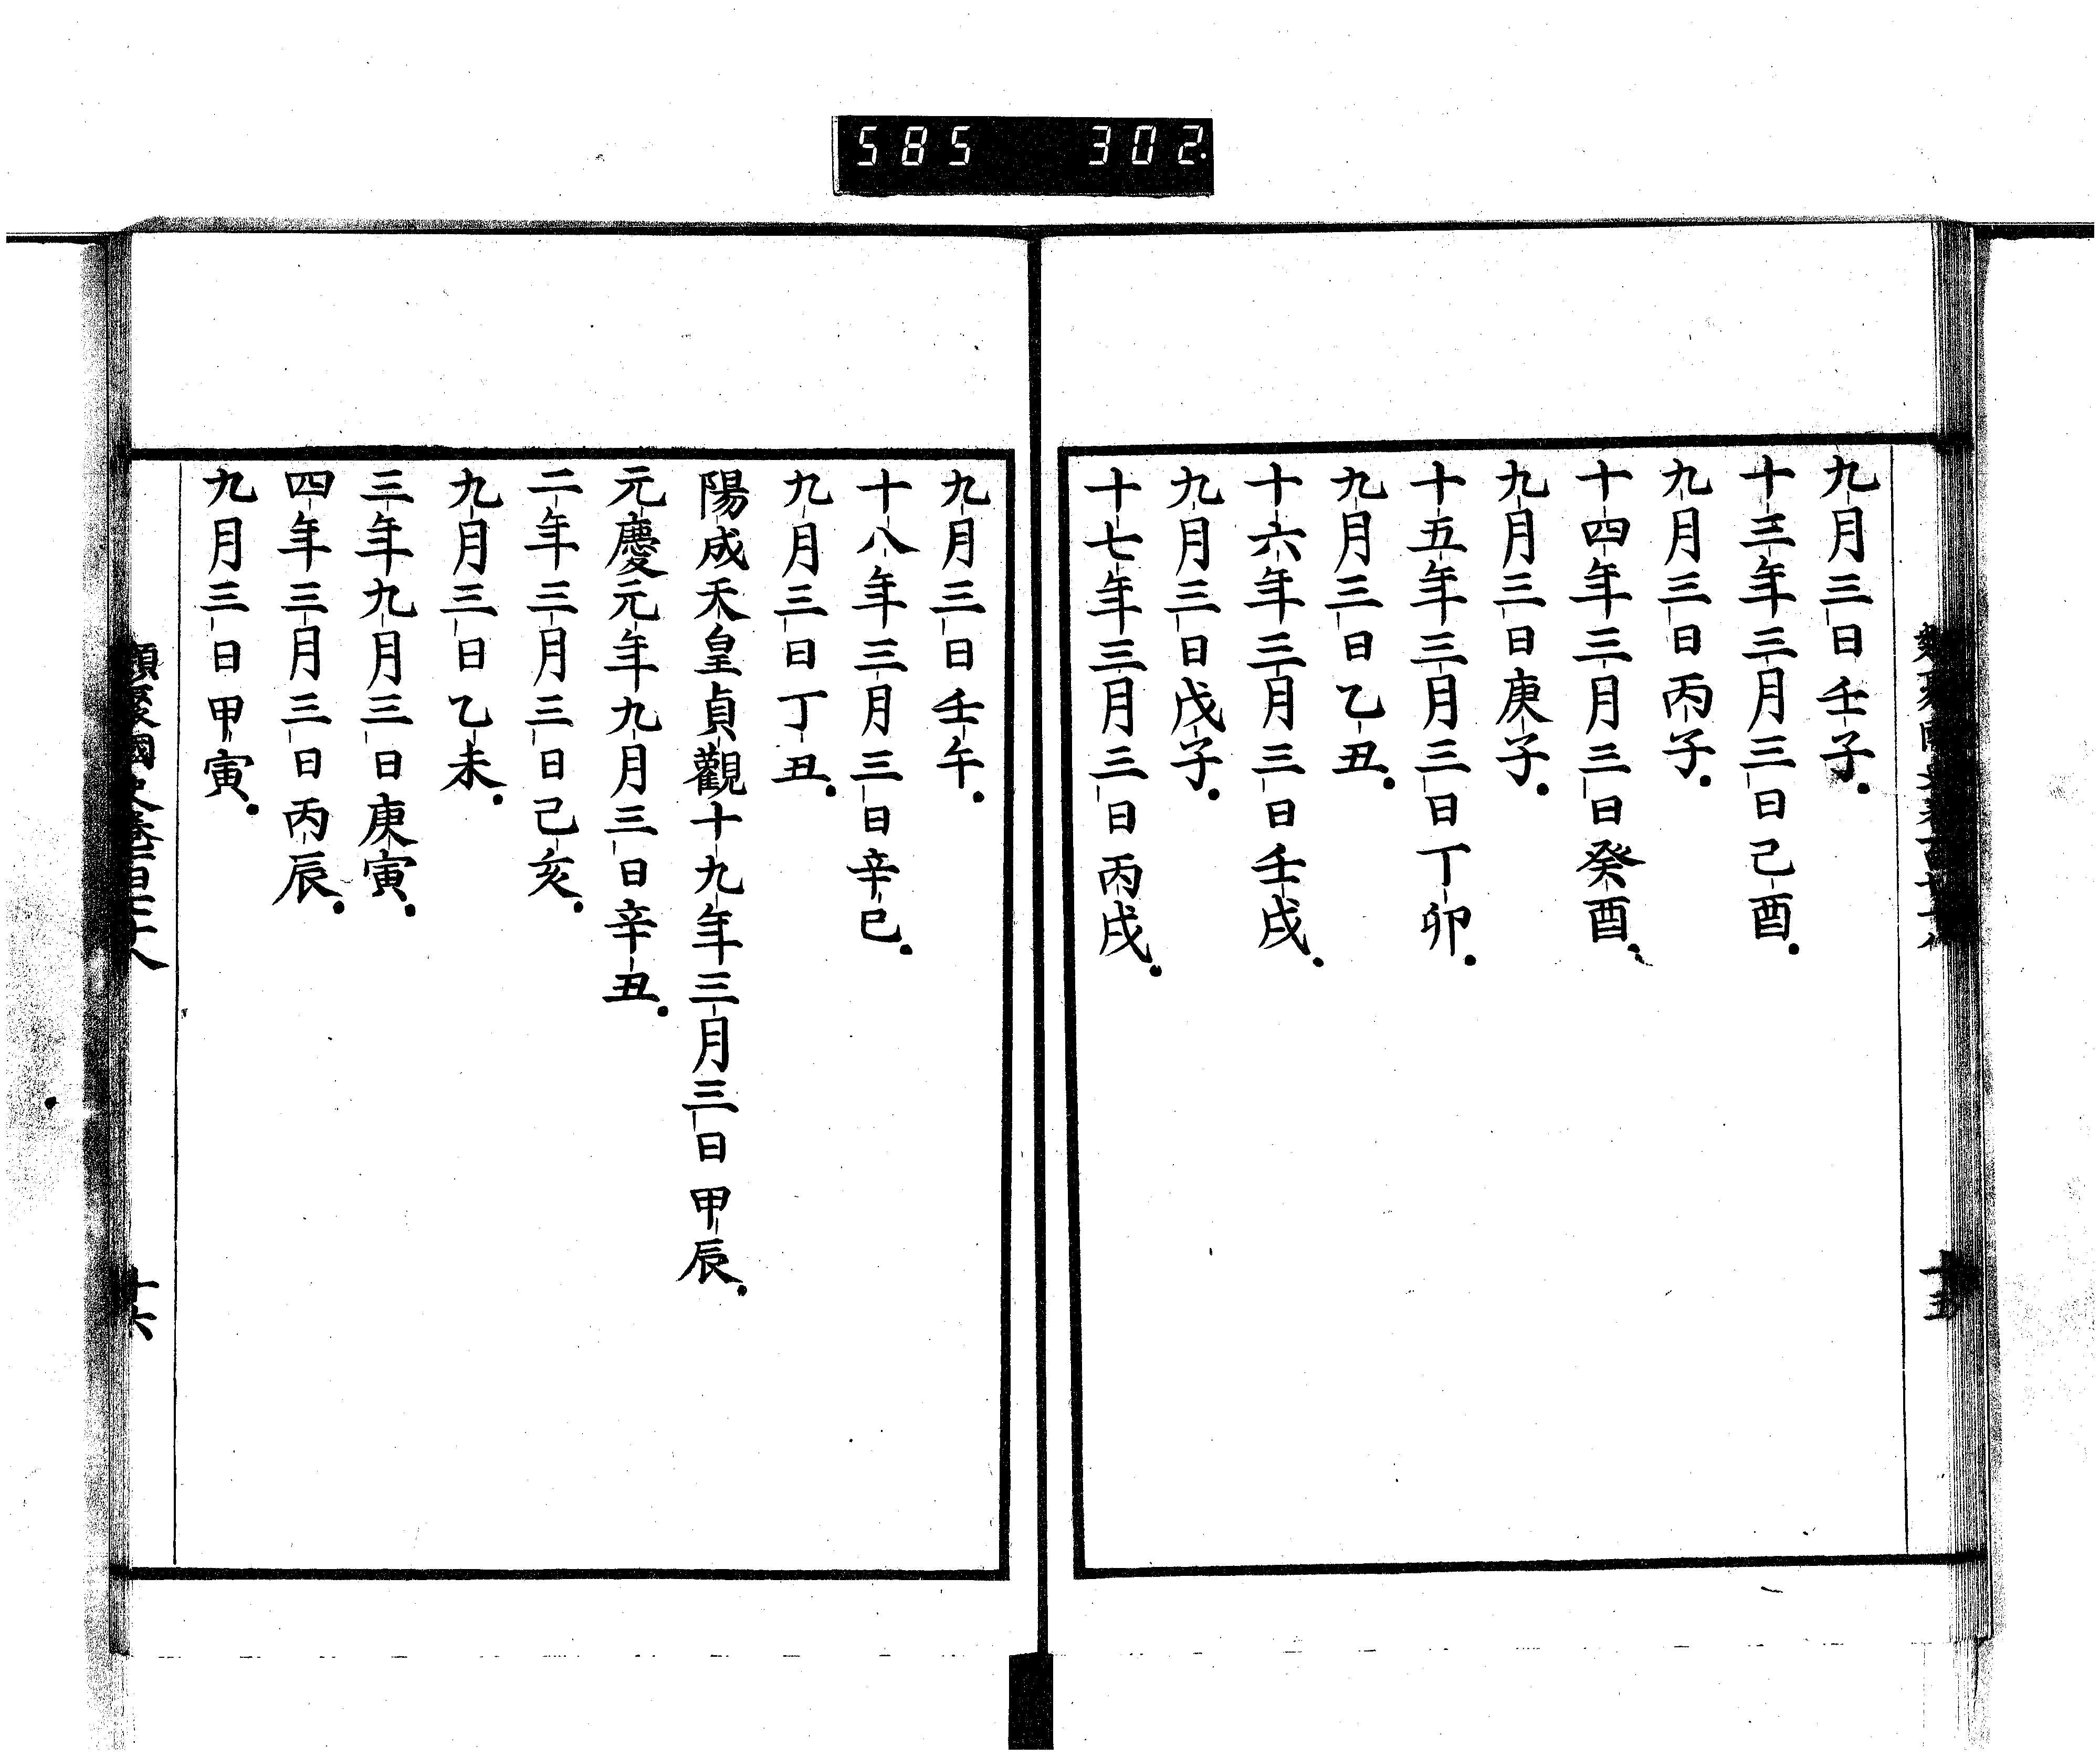 585 302
九月三日壬子
十三年三月三日己酉
九月三日丙子
十四年三月三日癸酉
九月三日庚子
十五年三月三日丁卯
九月三日乙丑
十六年三月三日壬戌
九月三日戊子
十七年三月三日丙戌
九月三日壬午
十八年三月三日辛巳
九月三日丁丑
陽成天皇貞觀十九年三月三日甲辰
元慶元年九月三日辛丑
二年三月三日己亥
九月三日乙未
三年九月三日庚寅
四年三月三日丙辰
九月三日甲寅
十六